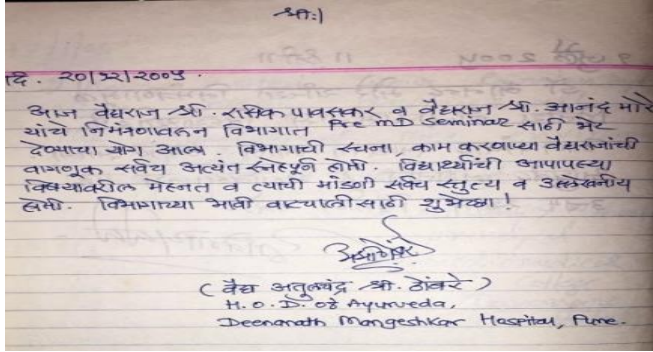 श्री:।
दि. २०/१२/२००५.
आज वैद्यराज श्री. रसिक पावसकर व वैद्यराज श्री. आनंद मोरे
यांचे निमंत्रणावरुन विभागात Pre MD Seminar साठी भेट
देण्याचा योग आला. विभागाची रचना, काम करणाऱ्या वैद्यराजांची
वागणूक सर्वच अत्यंत स्नेहपूर्ण होती. विद्यार्थ्यांची आपापल्या
विषयावरील मेहनत व त्याची मांडणी सर्वच स्तुत्य व उल्लेखनीय
होती. विभागाच्या भावी वाटचालीसाठी शुभेच्छा!
( वैद्य अतुलचंद्र श्री. ठोंबरे )
H.O.D. of Ayurveda,
Deenanath Mangeshkar Hospital, Pune.